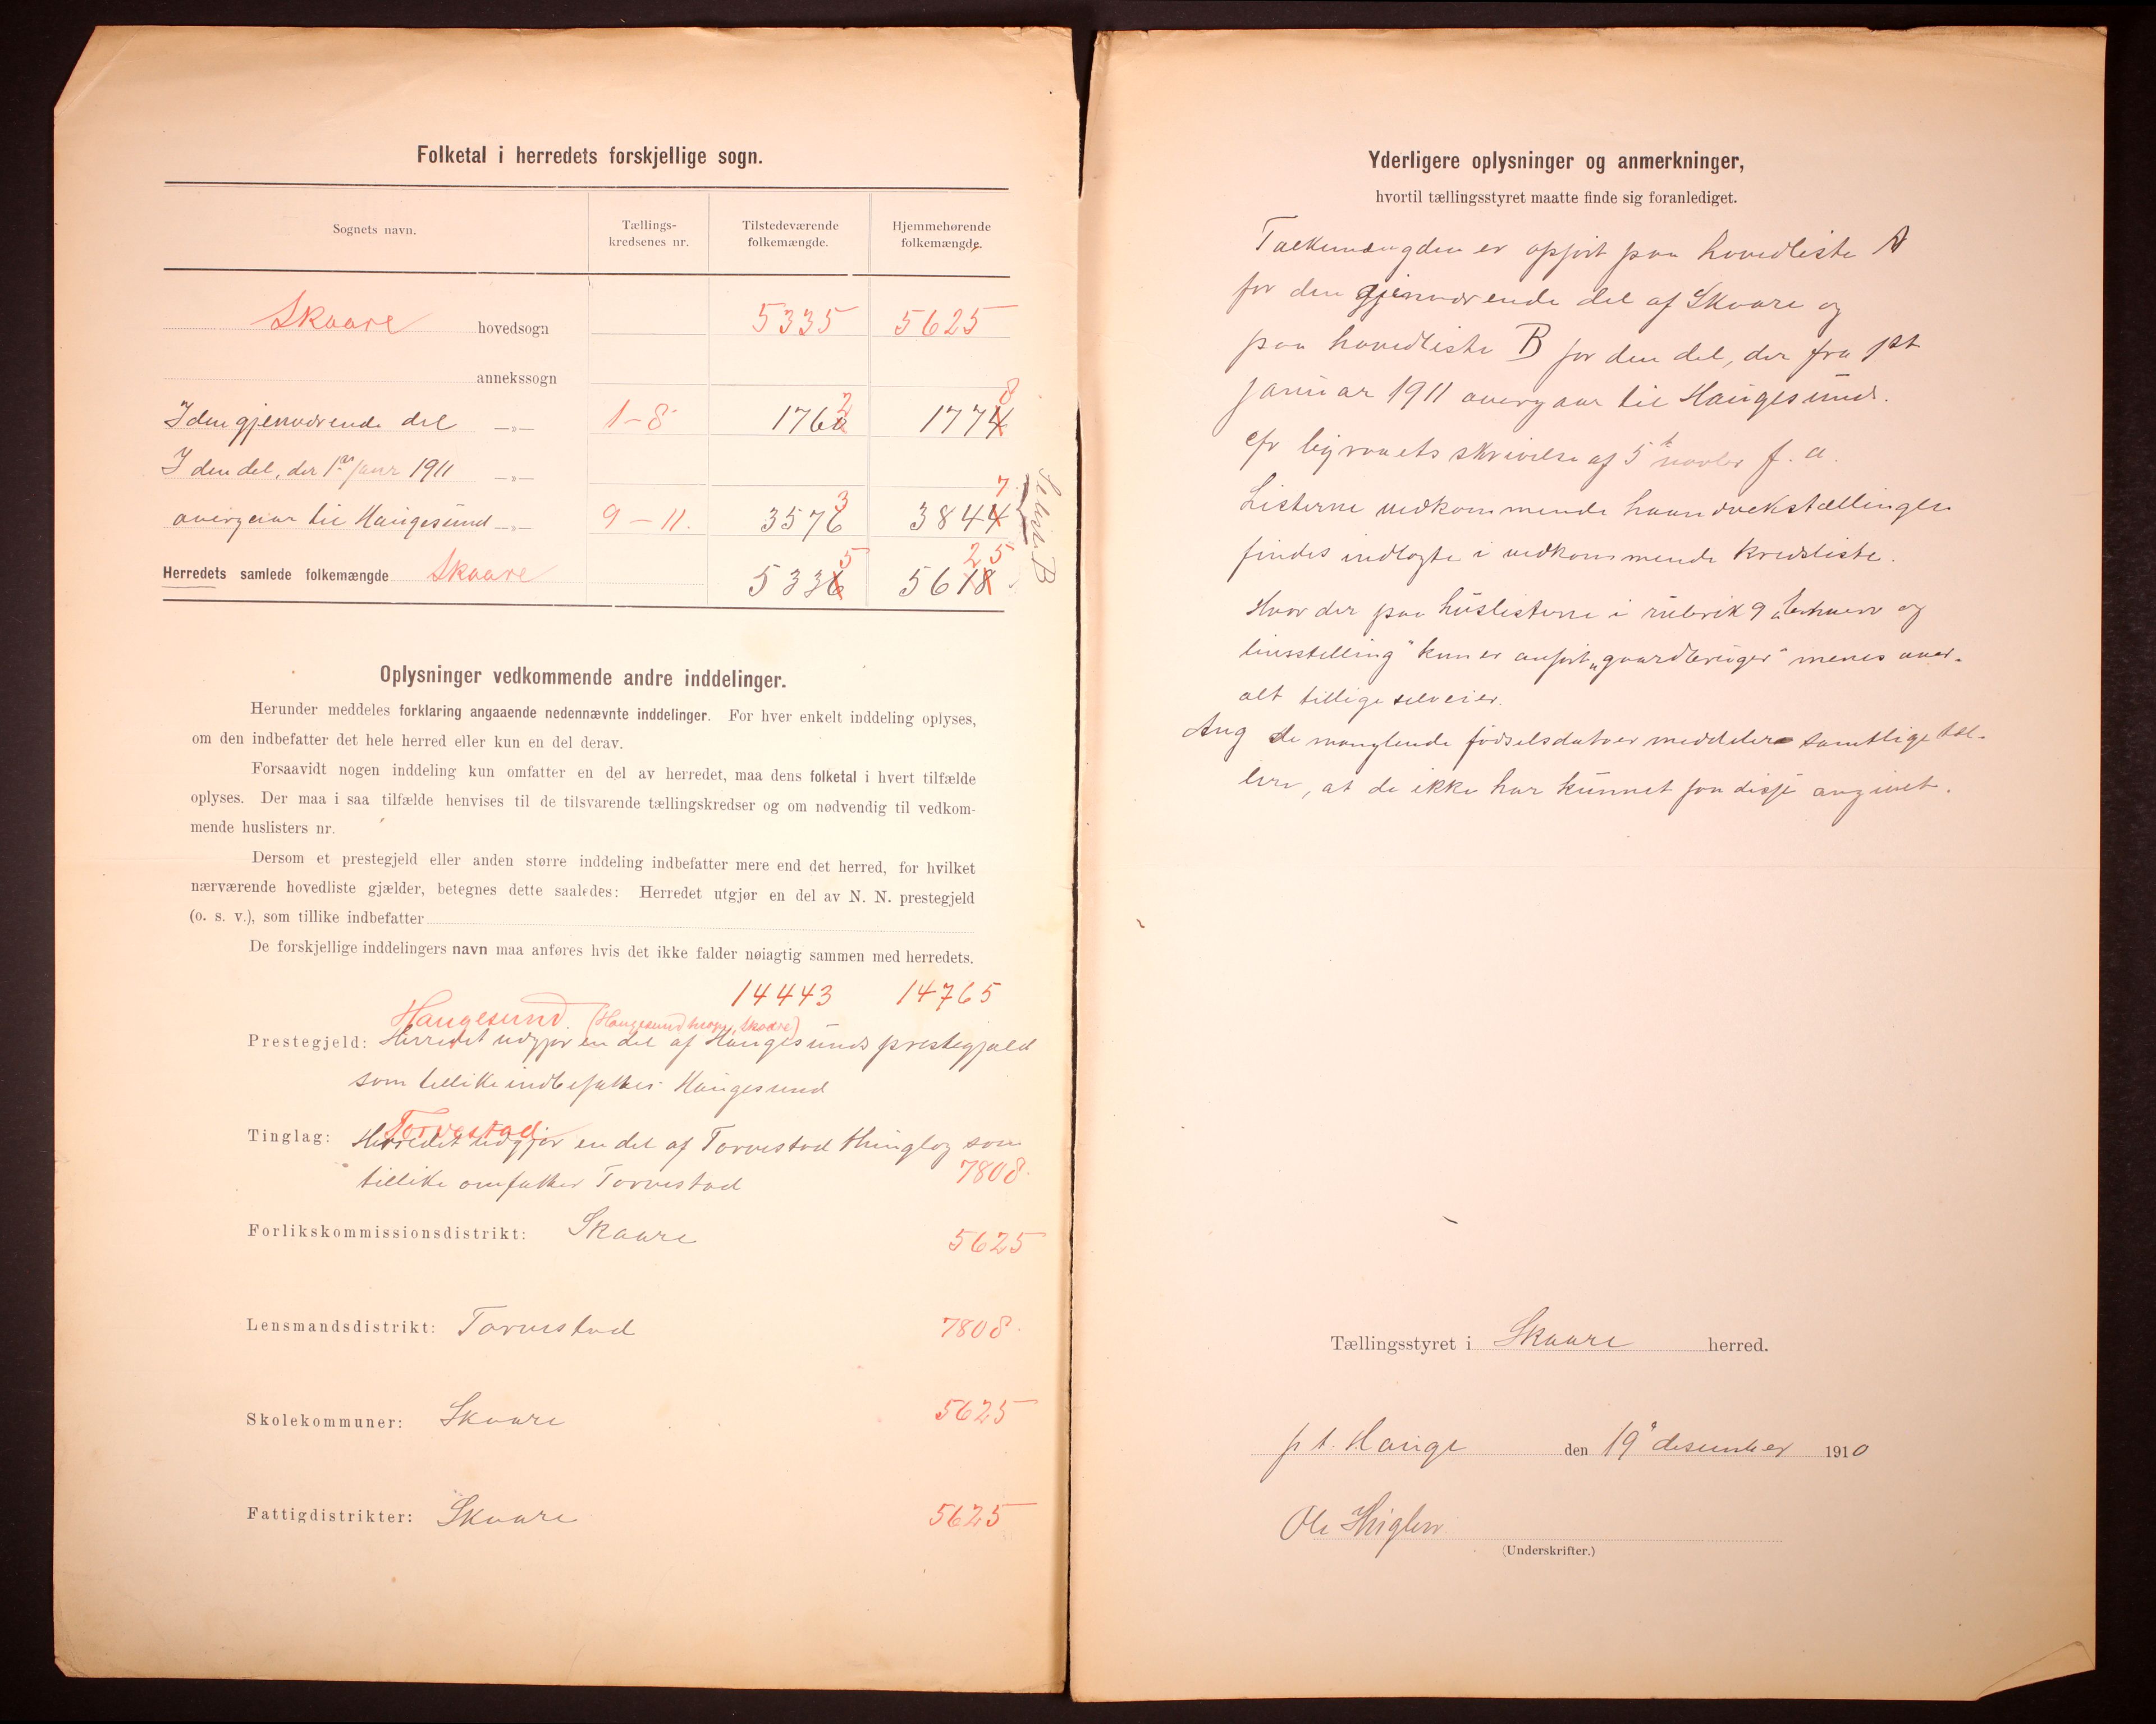 Folketal i herredets forskjellige sogn.
Sognets navn.
Tællings-
kredsenes nr.
Tilstedeværende
folkemængde.
Hjemmehørende
folkemængde.
Skaare hovedsogn 5335 5625
annekssogn
2 8
I den gjenværende del —„— 1–8 1760 1774
I den del, der 1ste Janr 1911 —„—
3 7
overgaar til Haugesund —„— 9–11. 3576 3844
Se liste B
5 25
Herredets samlede folkemængde Skaare 5336 5618
Oplysninger vedkommende andre inddelinger.
Herunder meddeles forklaring angaaende nedennævnte inddelinger. For hver enkelt inddeling oplyses,
om den indbefatter det hele herred eller kun en del derav.
Forsaavidt nogen inddeling kun omfatter en del av herredet, maa dens folketal i hvert tilfælde
oplyses. Der maa i saa tilfælde henvises til de tilsvarende tællingskredser og om nødvendig til vedkom-
mende huslisters nr.
Dersom et prestegjeld eller anden større inddeling indbefatter mere end det herred, for hvilket
nærværende hovedliste gjælder, betegnes dette saaledes: Herredet utgjør en del av N. N. prestegjeld
(o. s. v.), som tillike indbefatter
De forskjellige inddelingers navn maa anføres hvis det ikke falder nøiagtig sammen med herredets.
14443 14765
Haugesund. (Haugesund, Skaare)
Prestegjeld: Herredet udgjør en del af Haugesunds prestegjæld
som tillike indbefatter Haugesund
Torvestad
Tinglag: Herredet udgjør en del af Torvestad thinglag som
7808
tillike omfatter Torvestad
Forlikskommissionsdistrikt: Skaare 5625
Lensmandsdistrikt: Torvestad 7808
Skolekommuner: Skaare 5625
Fattigdistrikter: Skaare 5625
Yderligere oplysninger og anmerkninger,
hvortil tællingsstyret maatte finde sig foranlediget.
Folkemængden er opført paa hovedliste A
for den gjenværende del af Skaare og
paa hovedliste B for den del, der fra 1st
januar 1911 overgaar til Haugesund.
cfr byraaets skrivelse af 5t novbr f. a.
Listerne vedkommende haandverkstællingen
findes indlagte i vedkommende kredsliste.
Hvor der paa huslisterne i rubrik 9 „erhverv og
livsstilling" kun er anført „gaardbruger" menes over-
alt tillige selveier.
Ang de manglende fødselsdatoer meddeler samtlige tæl-
lere, at de ikke har kunnet faa disse angivet.
Tællingsstyret i Skaare herred.
p t. Hauge den 19 desember 1910
Ole
(Underskrifter.)